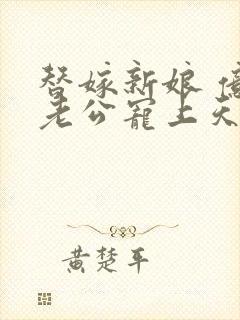 替嫁新娘 億
老公寵上天
黄楚平